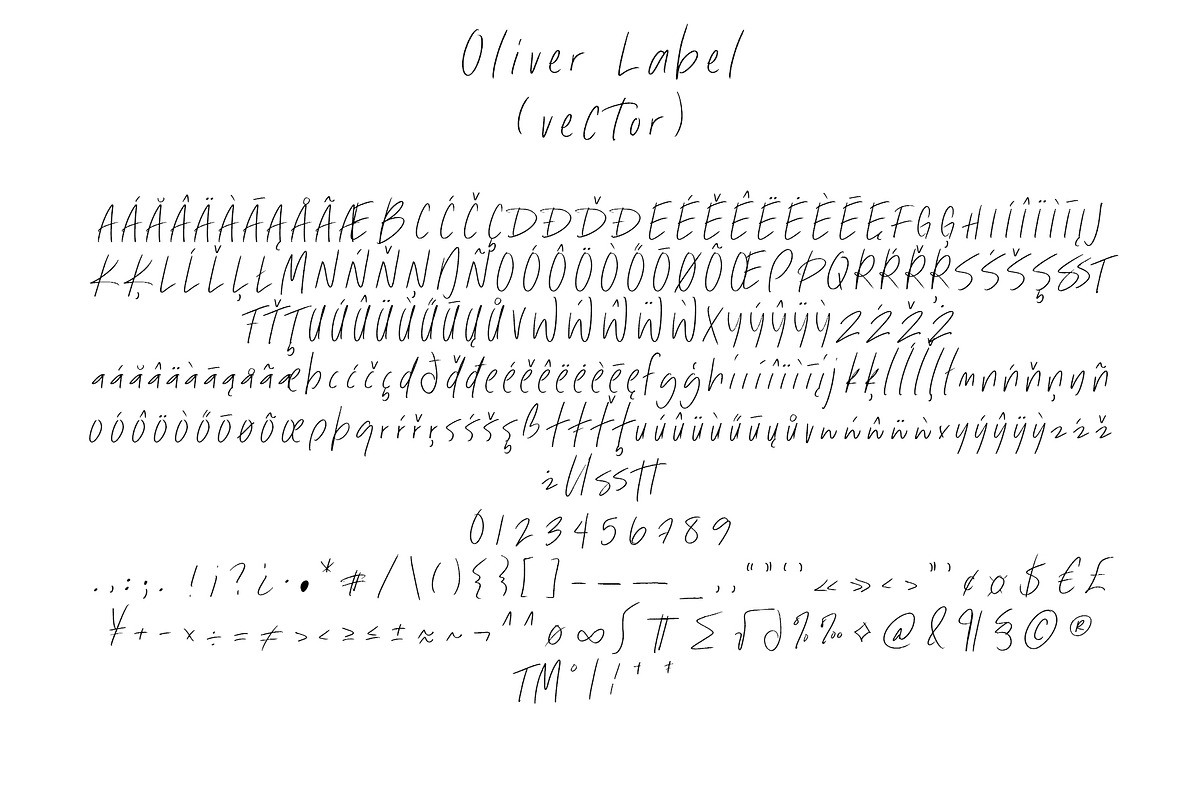 Oliver Label
(vector)
AÁĂÂÄÀĀĄÅÃÆBCĆČÇDĐĎĐEÉĚÊËĖÈĒĘFGĢHIÍÎÏİÌĪĮJ
KĶLĹĽĻŁMNŃŇŅŊÑOÓÔÖÒŐŌØÕŒPÞQRŔŘŖSŚŠŞẞST
ŦŤŢUÚÛÜÙŰŪŲŮVWẂŴẄẀXYÝŶŸỲZŹŽŻ
aáăâäàāąåãæbcćčçdðďđeéěêëėèēęfgģhıíîïìīįjkķlĺľļłmnńňņŋñ
oóôöòőōøõœpþqrŕřŗsśšşßtŧťţuúûüùűūųůvwẃŵẅẁxyýŷÿỳzźž
żllsstt
0123456789
.,:;.!¡?¿·•*#/\(){}[]–—―_‚„“”‘’«»‹›"'¢¤$€£
¥+−×÷=≠><≥≤±≈~¬^^ø∞∫π∑√∂%‰◊@&¶§©®
TM°|¦†‡